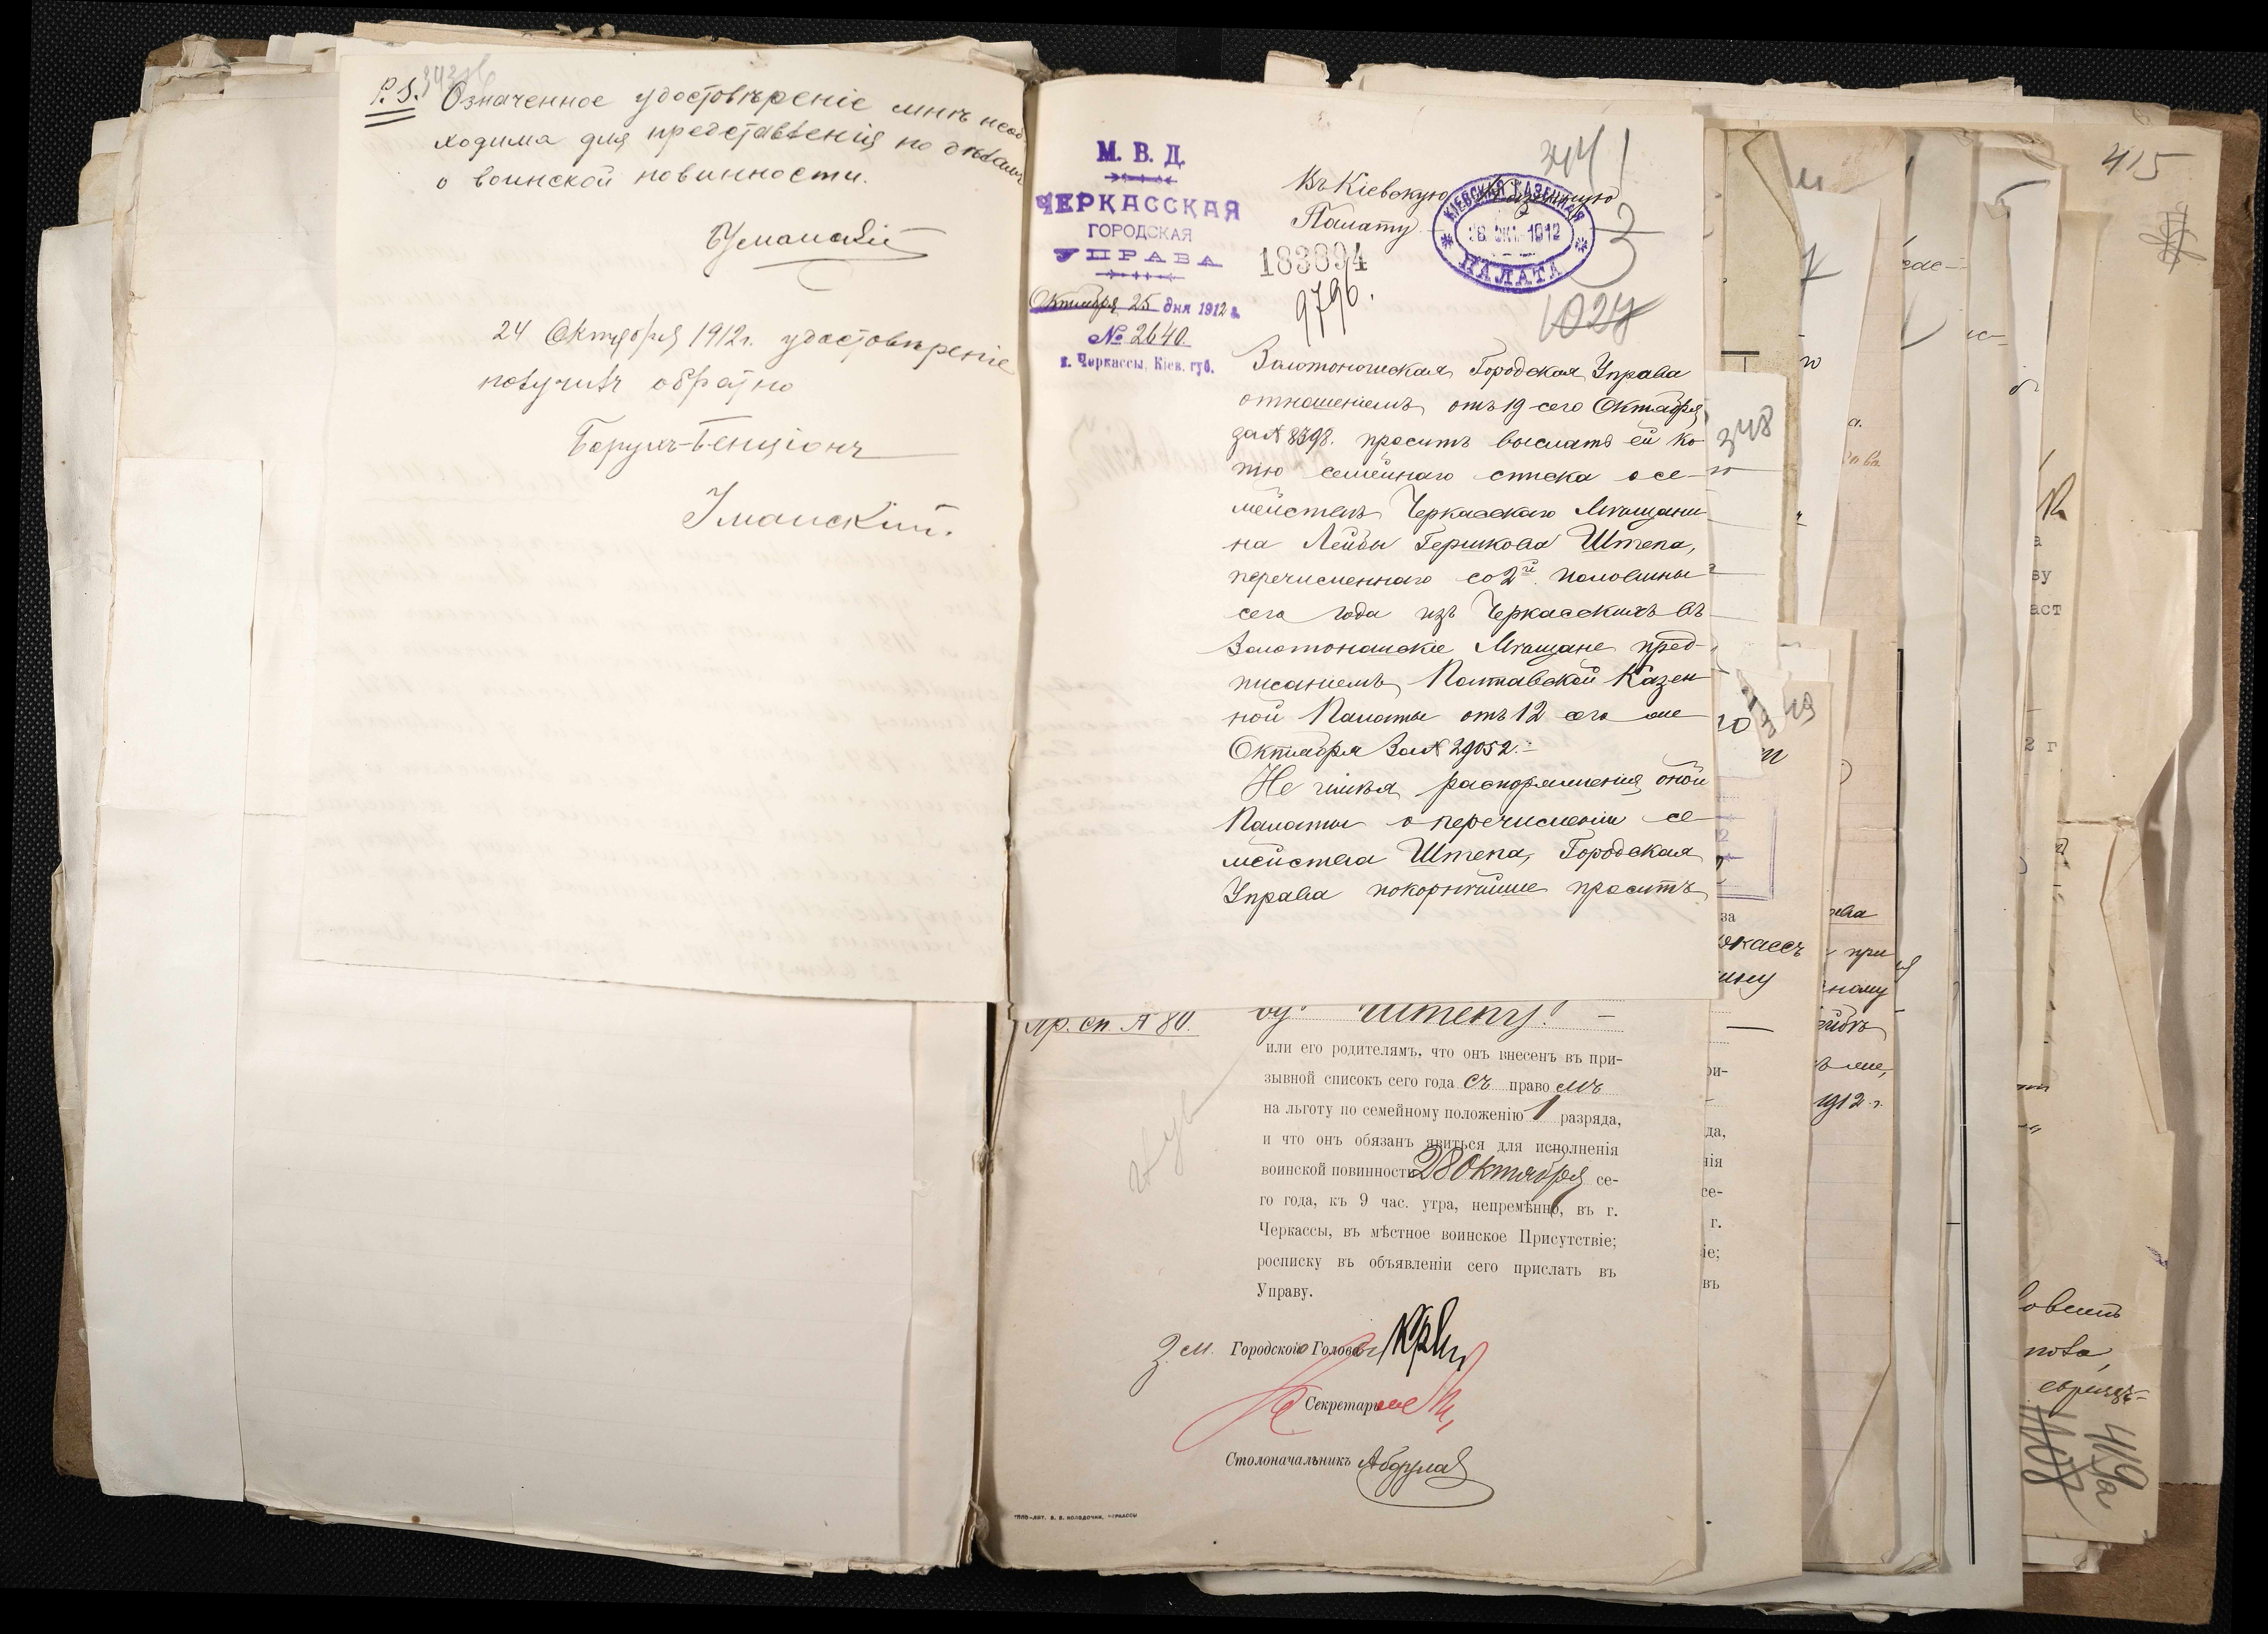 P. S. Означенное удостовѣреніе мнѣ необ-
ходима для представленія по дѣламъ
о воинской повинности.
БУманскій
24 Октября 1912 г. удостовѣреніе
получилъ обратно
Борухъ-Бенціонъ
Уманский.
М. В. Д.
ЧЕРКАССКАЯ
ГОРОДСКАЯ
УПРАВА
Октября 25 дня 1912 г.
№ 2640
г. Черкассы, Кіев. губ.
344
Въ Кіевскую Казенную
Палату
КІЕВСКАЯ КАЗЕННАЯ
ПАЛАТА
183894
9796.
1024
Золотоношская Городская Управа
отношеніемъ отъ 19 сего Октября
за № 8398. проситъ выслать ей ко-
пію семейнаго списка о се-
мействѣ Черкасскаго Мѣщани-
на Лейбы Гершкова Штепа,
перечисленнаго со 2й половины
сего года изъ Черкасскихъ въ
Золотоношскіе Мѣщане пред-
писаніемъ Полтавской Казен-
ной Палаты отъ 12 сего же
Октября за № 29052.-
Не имѣя распоряженія оной
Палаты о перечисленіи се-
мейства Штепа, Городская
Управа покорнѣйше проситъ
Пр. сп. № 80.
Штепу.
или его родителямъ, что онъ внесенъ въ при-
зывной списокъ сего года съ право мъ
на льготу по семейному положенію 1 разряда,
и что онъ обязанъ явиться для исполненія
воинской повинности 28 Октября се-
го года, къ 9 час. утра, непремѣнно, въ г.
Черкассы, въ мѣстное воинское Присутствіе;
росписку въ объявленіи сего прислать въ
Управу.
З. м. Городского Головы
Секретарь
Столоначальникъ
348
415
419а
1912 г.